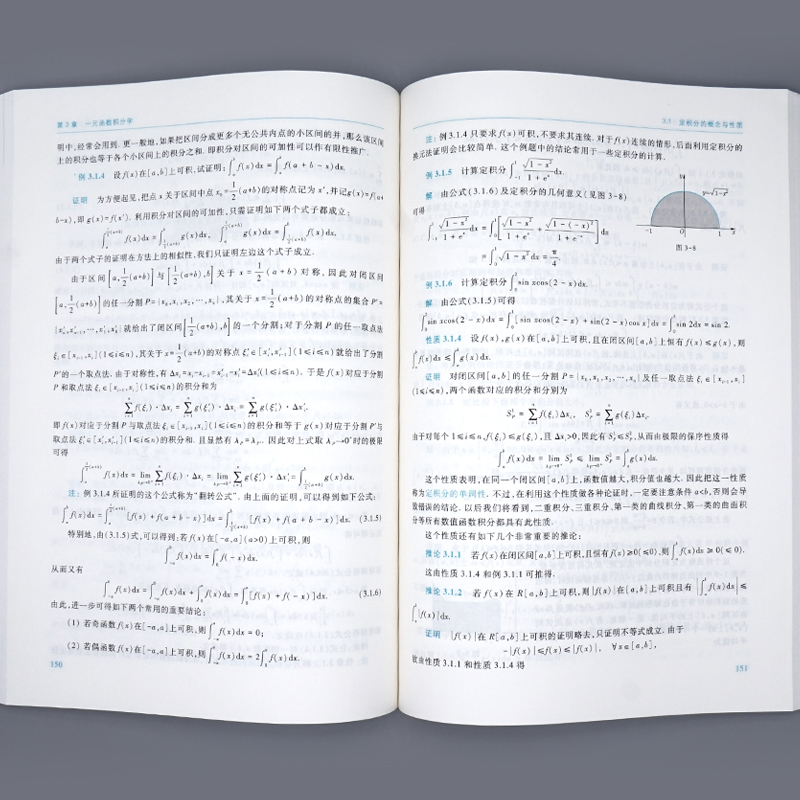 第3章 一元函数积分学
明中,经常会用到. 更一般地,如果把区间分成更多个无公共内点的小区间的并,那么该区间
上的积分也等于各个小区间上的积分之和. 即积分对区间的可加性可以作有限性推广.
例 3.1.4 设 f(x) 在[a,b]上可积,试证明: ∫_a^b f(x)dx = ∫_a^b f(a+b-x)dx.
证明 为方便起见,把点 x 关于区间中点 x₀ = 1/2(a+b) 的对称点记为 x′,并记 g(x) = f(a+
b-x),即 g(x) = f(x′). 利用积分对区间的可加性,只需证明如下两个式子都成立:
∫_a^{1/2(a+b)} f(x)dx = ∫_{1/2(a+b)}^b g(x)dx, ∫_a^{1/2(a+b)} g(x)dx = ∫_{1/2(a+b)}^b f(x)dx.
由于两个式子的证明在方法上的相似性,我们只证明左边这个式子成立.
由于区间 [a,1/2(a+b)] 与 [1/2(a+b),b] 关于 x = 1/2(a+b) 对称,因此对闭区间
[a,1/2(a+b)] 的任一分割 P={x₀,x₁,x₂,⋯,xₙ},其关于 x=1/2(a+b) 的对称点的集合 P′=
{x′ₙ,x′ₙ₋₁,⋯,x′₁,x′₀} 就给出了闭区间 [1/2(a+b),b] 的一个分割;对于分割 P 的任一取点法
ξᵢ∈[xᵢ₋₁,xᵢ](1≤i≤n),其关于 x=1/2(a+b) 的对称点 ξ′ᵢ∈[x′ᵢ,x′ᵢ₋₁](1≤i≤n) 就给出了分割
P′的一个取点法. 由于对称性,有 Δxᵢ=xᵢ-xᵢ₋₁=x′ᵢ₋₁-x′ᵢ=Δx′ᵢ(1≤i≤n). 于是 f(x) 对应于分割
P 和取点法 ξᵢ∈[xᵢ₋₁,xᵢ](1≤i≤n) 的积分和为
∑_{i=1}^n f(ξᵢ)·Δxᵢ = ∑_{i=1}^n g(ξ′ᵢ)·Δxᵢ = ∑_{i=1}^n g(ξ′ᵢ)·Δx′ᵢ.
即 f(x) 对应于分割 P 与取点法 ξᵢ∈[xᵢ₋₁,xᵢ](1≤i≤n) 的积分和等于 g(x) 对应于分割 P′与
取点法 ξ′ᵢ∈[x′ᵢ,x′ᵢ₋₁](1≤i≤n) 的积分和. 且显然有 λ_P=λ_P′. 因此对上式取 λ_P→0⁺时的极限
可得
∫_a^{1/2(a+b)} f(x)dx = lim_{λ_P→0⁺} ∑_{i=1}^n f(ξᵢ)·Δxᵢ = lim_{λ_P′→0⁺} ∑_{i=1}^n g(ξ′ᵢ)·Δx′ᵢ = ∫_{1/2(a+b)}^b g(x)dx.
注: 例 3.1.4 所证明的这个公式称为“翻转公式”. 由上面的证明,可以得到如下公式:
∫_a^b f(x)dx = ∫_a^{1/2(a+b)} [f(x)+f(a+b-x)]dx = ∫_{1/2(a+b)}^b [f(x)+f(a+b-x)]dx. (3.1.5)
特别地,由(3.1.5)式,可以得到:若 f(x) 在[-a,a](a>0)上可积,则
∫_{-a}^0 f(x)dx = ∫_0^a f(-x)dx.
从而又有
∫_{-a}^a f(x)dx = ∫_{-a}^0 f(x)dx + ∫_0^a f(x)dx = ∫_0^a [f(x)+f(-x)]dx. (3.1.6)
由此,进一步可得如下两个常用的重要结论:
(1) 若奇函数 f(x) 在[-a,a]上可积,则 ∫_{-a}^a f(x)dx = 0;
(2) 若偶函数 f(x) 在[-a,a]上可积,则 ∫_{-a}^a f(x)dx = 2∫_0^a f(x)dx.
150
3.1 定积分的概念与性质
注: 例 3.1.4 只要求 f(x) 可积,不要求其连续. 对于 f(x) 连续的情形,后面利用定积分的
换元法证明会比较简单. 这个例题中的结论常用于一些定积分的计算.
例 3.1.5 计算定积分 ∫_{-1}^1 √(1-x²)/(1+eˣ) dx.
解 由公式(3.1.6)及定积分的几何意义(见图 3-8)
可得
∫_{-1}^1 √(1-x²)/(1+eˣ) dx = ∫_0^1 [√(1-x²)/(1+eˣ) + √(1-(-x)²)/(1+e⁻ˣ)] dx
= ∫_0^1 √(1-x²) dx = π/4.
y
y=√(1-x²)
-1 0 1 x
图 3-8
例 3.1.6 计算定积分 ∫_0^2 sin xcos(2-x)dx.
解 由公式(3.1.5)可得
∫_0^2 sin xcos(2-x)dx = ∫_0^1 [sin xcos(2-x)+sin(2-x)cos x]dx = ∫_0^1 sin 2dx = sin 2.
性质 3.1.4 设 f(x),g(x) 在[a,b]上可积,且在闭区间[a,b]上恒有 f(x)≤g(x),则
∫_a^b f(x)dx ≤ ∫_a^b g(x)dx.
证明 对闭区间[a,b]的任一分割 P={x₀,x₁,x₂,⋯,xₙ}及任一取点法 ξᵢ∈[xᵢ₋₁,xᵢ]
(1≤i≤n),两个函数对应的积分和分别为
S_P^f = ∑_{i=1}^n f(ξᵢ)Δxᵢ, S_P^g = ∑_{i=1}^n g(ξᵢ)Δxᵢ.
由于对每个 1≤i≤n,f(ξᵢ)≤g(ξᵢ),且 Δxᵢ>0,因此有 S_P^f≤S_P^g,从而由极限的保序性质得
∫_a^b f(x)dx = lim_{λ_P→0⁺} S_P^f ≤ lim_{λ_P→0⁺} S_P^g = ∫_a^b g(x)dx.
这个性质表明,在同一个闭区间[a,b]上,函数值越大,积分值也越大. 因此把这一性质
称为定积分的单调性. 不过,在利用这个性质做各种论证时,一定要注意条件 a<b,否则会导
致错误的结论. 以后我们将看到,二重积分、三重积分、第一类的曲线积分、第一类的曲面积
分等所有数值函数积分都具有此性质.
这个性质还有如下几个非常重要的推论:
推论 3.1.1 若 f(x) 在闭区间[a,b]上可积,且恒有 f(x)≥0(≤0),则 ∫_a^b f(x)dx≥0(≤0).
这由性质 3.1.4 和例 3.1.1 可推得.
推论 3.1.2 若 f(x) 在 R[a,b] 上可积,则|f(x)|在[a,b]上可积且有 |∫_a^b f(x)dx| ≤
∫_a^b |f(x)|dx.
证明 |f(x)|在 R[a,b]上可积的证明略去,只证明不等式成立. 由于
-|f(x)|≤f(x)≤|f(x)|, ∀x∈[a,b],
故由性质 3.1.1 和性质 3.1.4 得
151